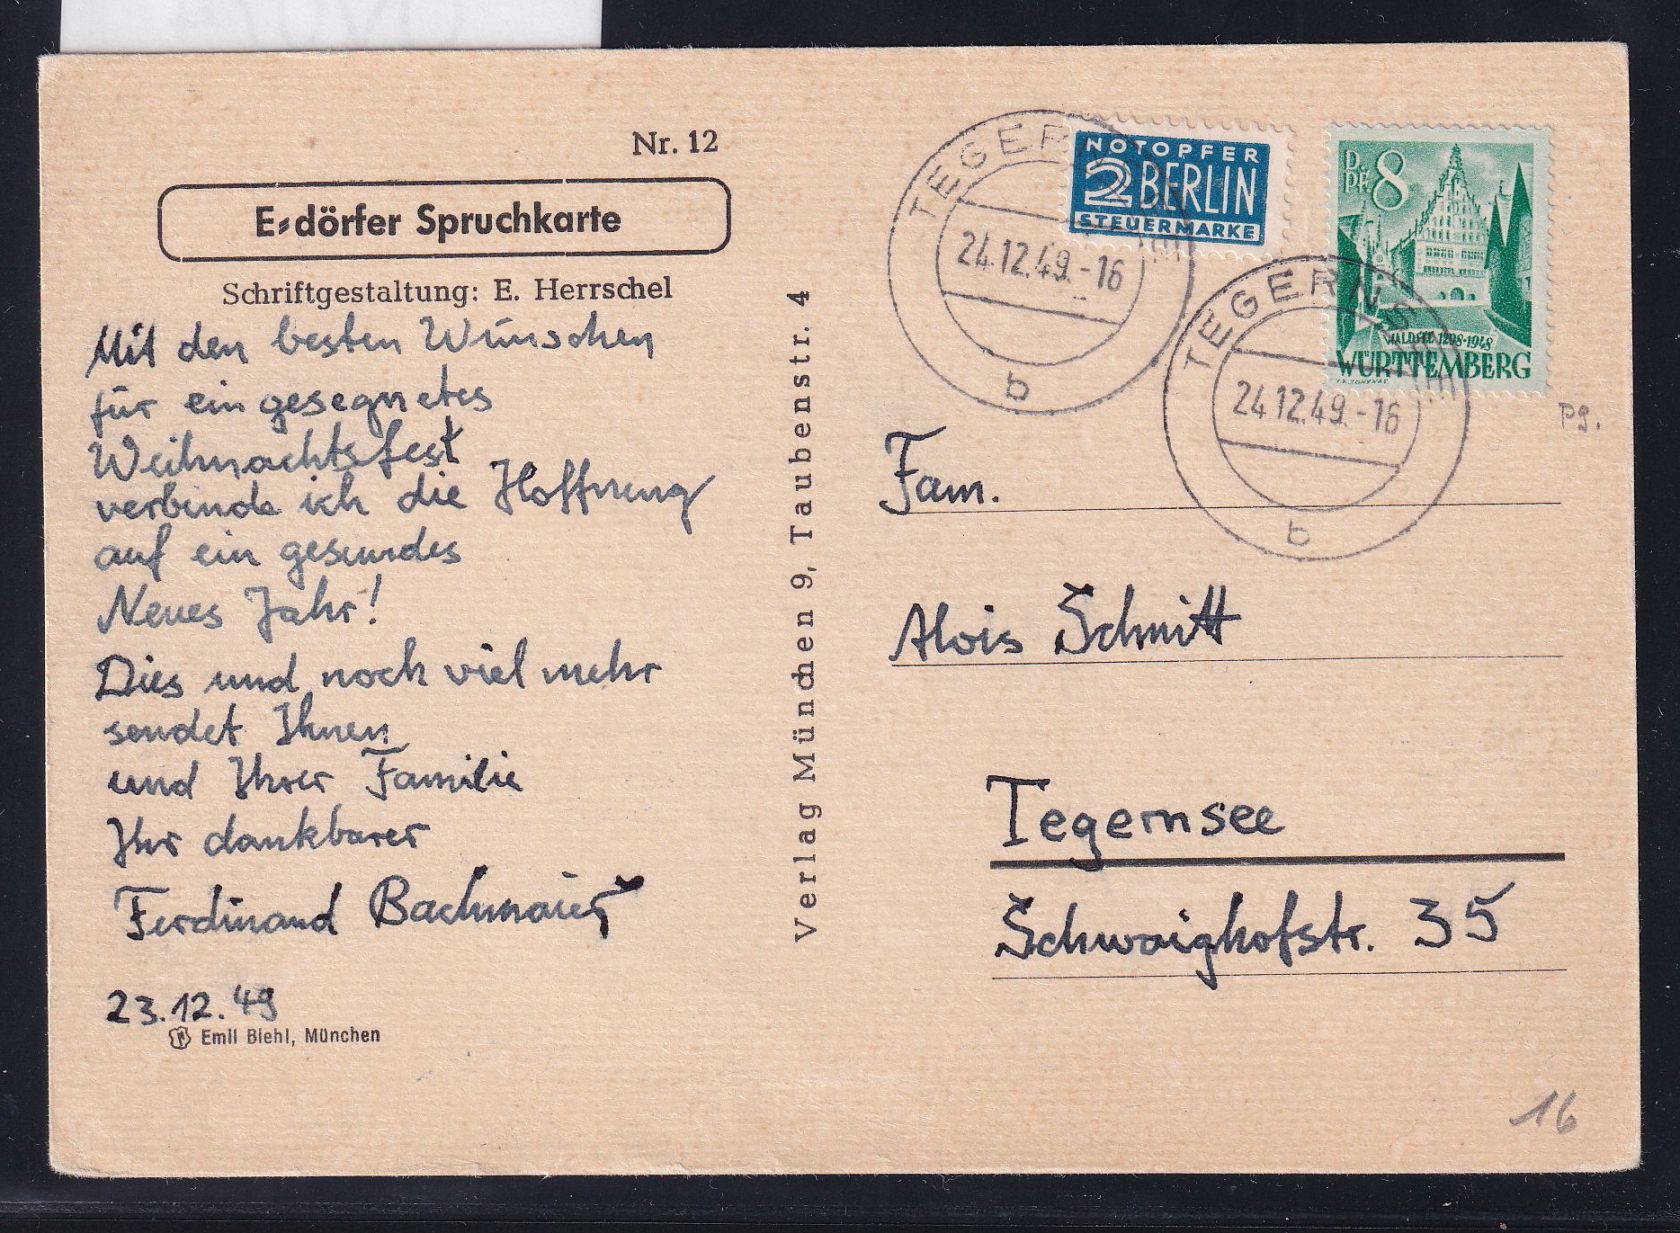 Nr. 12
E⸗dörfer Spruchkarte
Schriftgestaltung: E. Herrschel
Mit den besten Wünschen
für ein gesegnetes
Weihnachtsfest
verbinde ich die Hoffnung
auf ein gesundes
Neues Jahr!
Dies und noch viel mehr
sendet Ihnen
und Ihrer Familie
Ihr dankbarer
Ferdinand Bachmaier
23.12.49
Emil Biehl, München
Verlag München 9, Taubenstr. 4
TEGERNSEE
24.12.49.-16
b
NOTOPFER
2 BERLIN
STEUERMARKE
Pf. 8
WALDSEE 1298·1948
WÜRTTEMBERG
TEGERNSEE
24.12.49.-16
b
Pg.
Fam.
Alois Schmitt
Tegernsee
Schwaighofstr. 35
16